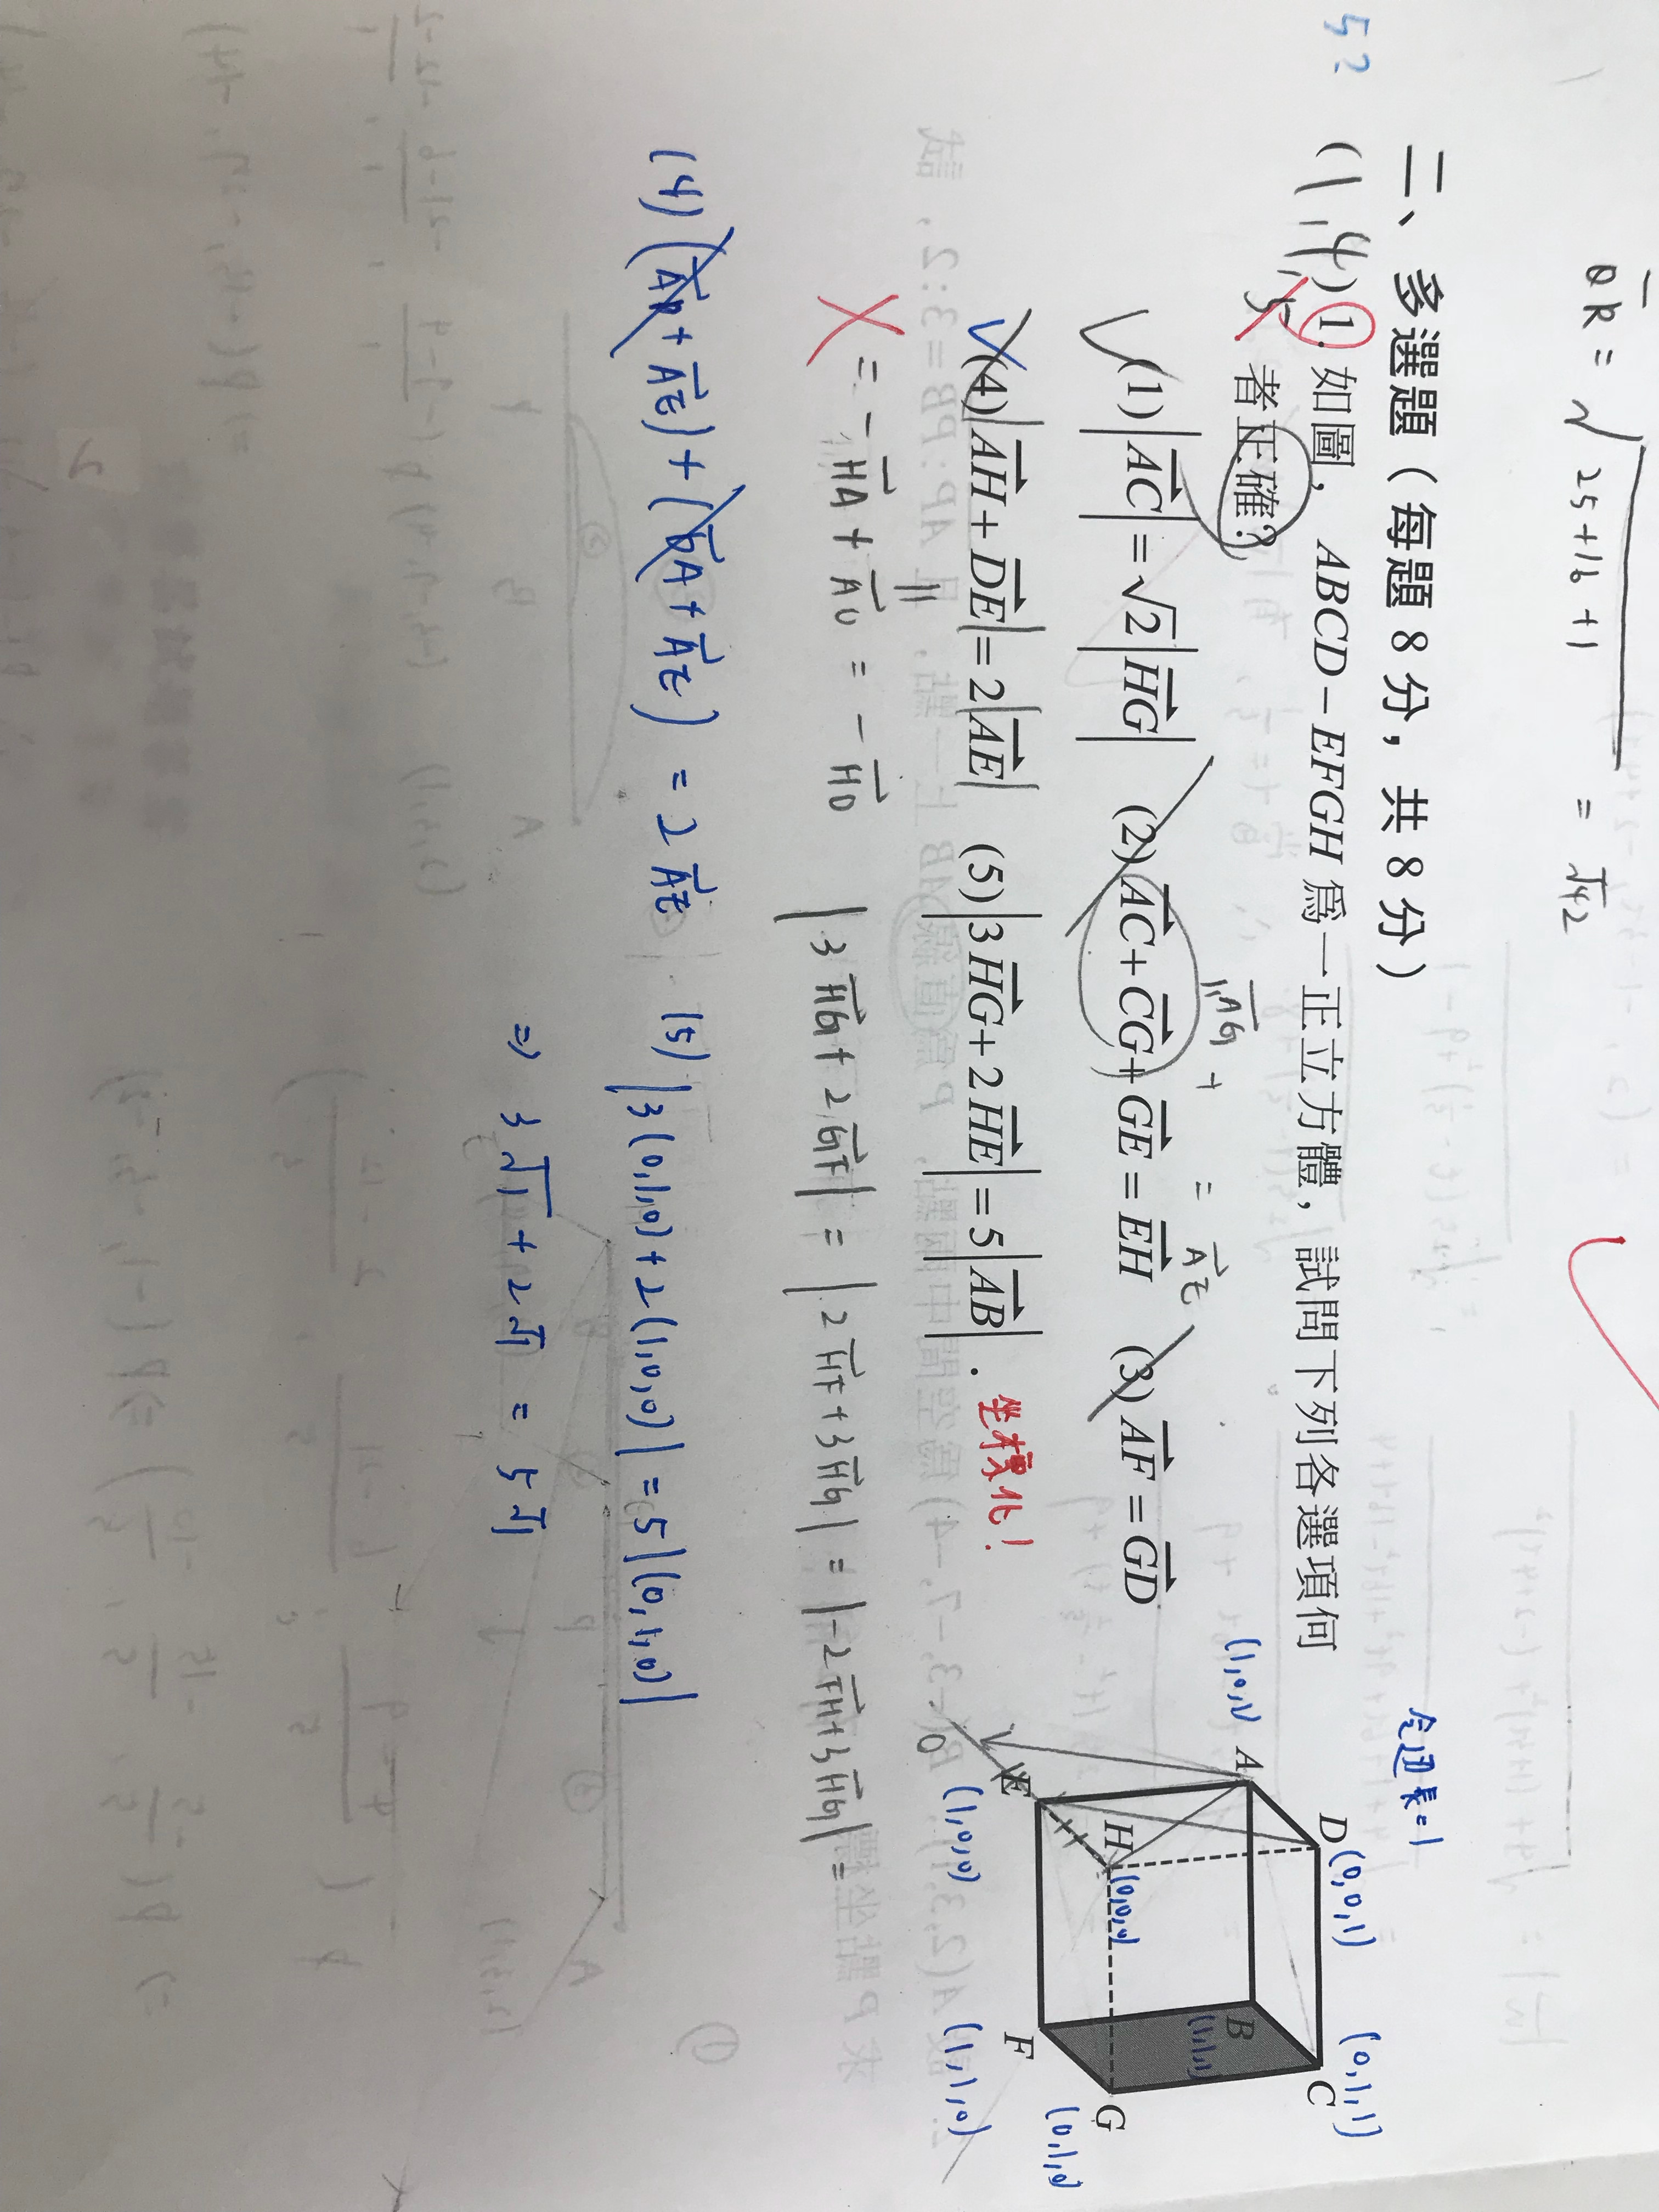 QR = √25+16+1 = √42
5?
二、多選題（每題 8 分，共 8 分）
(1,4) 1. 如圖，ABCD－EFGH 為一正立方體，試問下列各選項何
5 者正確?
AG + = AE
(1) |AC| = √2 |HG| (2) AC + CG + GE = EH (3) AF = GD
(4) |AH + DE| = 2|AE| (5) |3HG + 2HE| = 5|AB|.
坐標化!
= -HA + AD = -HD
|3HG + 2GF| = |2HF + 3HG| = |-2FH + 3HG| =
(4) (AD + AE) + (DA + AE) = 2AE
(5) |3(0,1,0) + 2(1,0,0)| = 5|(0,1,0)|
⇒ 3√1 + 2√1 = 5√1
令邊長=1
D (0,0,1)
C (0,1,1)
A (1,0,1)
B (1,1,1)
H (0,0,0)
G (0,1,0)
E (1,0,0)
F (1,1,0)